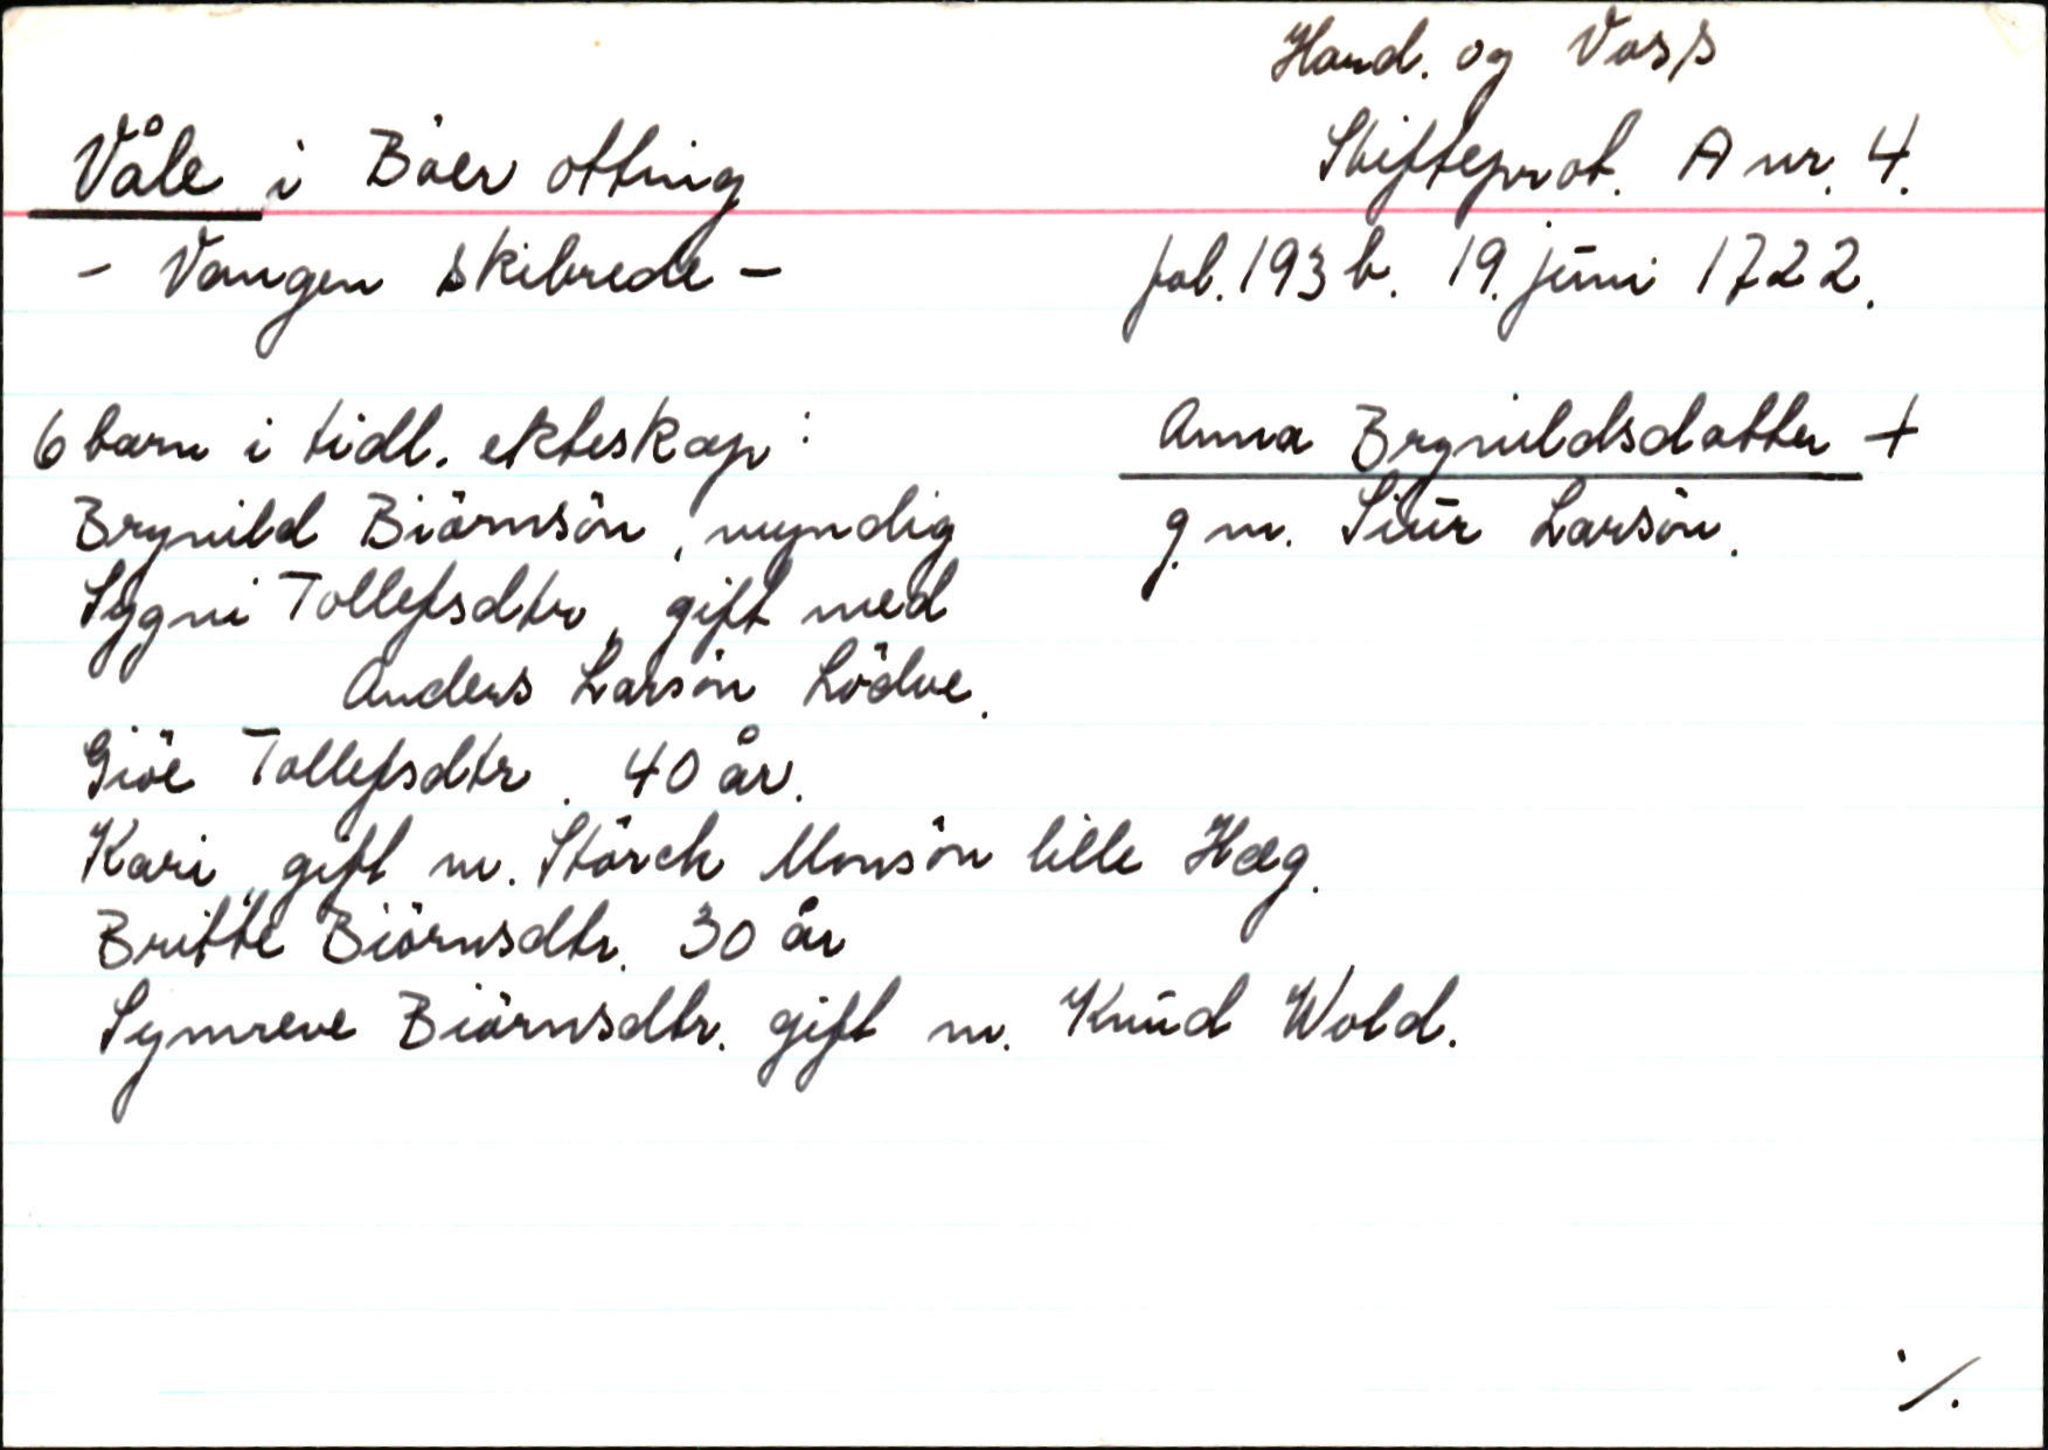 Hard. og Voss
Skifteprot. A nr. 4.
fol. 193 b. 19. juni 1722.
Våle i Böer otting
- Vangen skibrede -
Anna Brynildsdatter +
g. m. Siur Larsön.
6 barn i tidl. ekteskap:
Brynild Biörnsön, myndig
Sygni Tollefsdtr, gift med
Anders Larsön Lödve.
Giöe Tollefsdtr. 40 år.
Kari, gift m. Störck Monsön lille Hæg.
Britte Biörnsdtr. 30 år
Synneve Biörnsdtr. gift m. Knud Wold.
./.